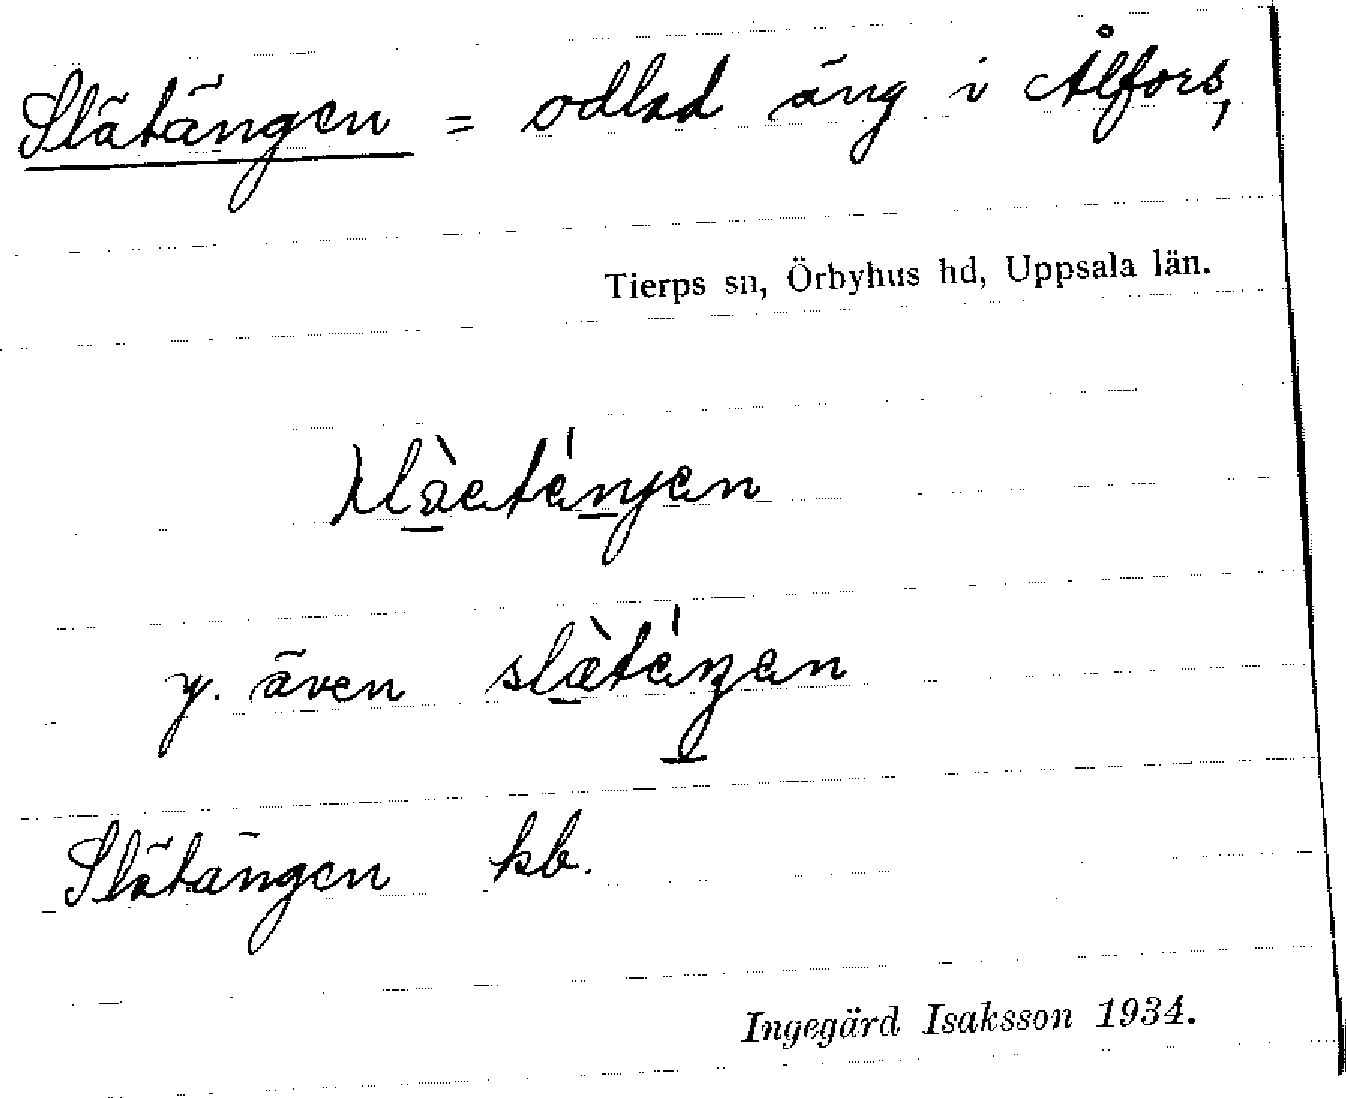 Slätängen = odlad äng i Ålfors,
Tierps sn, Örbyhus hd, Uppsala län.
y. även slæ̀téŋen
Slätängen kb.
Ingegärd Isaksson 1934.